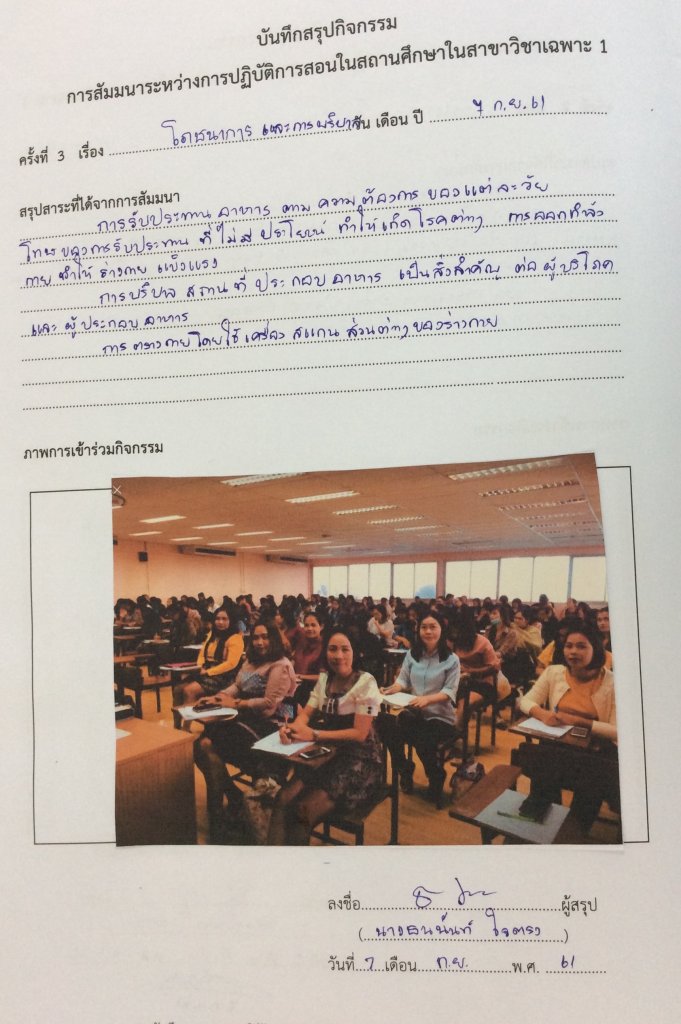 บันทึกสรุปกิจกรรม
การสัมมนาระหว่างการปฏิบัติการสอนในสถานศึกษาในสาขาวิชาเฉพาะ 1
ครั้งที่ 3 เรื่อง โภชนาการ และการบริบาล วัน เดือน ปี 7 ก.ย. 61
สรุปสาระที่ได้จากการสัมมนา
การรับประทาน อาหาร ตาม ความต้องการ ของแต่ละวัย
โทษของการรับประทาน ที่ไม่มีประโยชน์ ทำให้เกิดโรคต่างๆ การออกกำลัง
กาย ทำให้ ร่างกาย แข็งแรง
การบริบาล สถานที่ ประกอบอาหาร เป็นสิ่งสำคัญ ต่อ ผู้บริโภค
และ ผู้ประกอบอาหาร
การตรวจกายโดยใช้เครื่อง สแกน ส่วนต่างๆ ของร่างกาย
ภาพการเข้าร่วมกิจกรรม
ลงชื่อ ผู้สรุป
( ใจตรง )
วันที่ 7 เดือน ก.ย. พ.ศ. 61